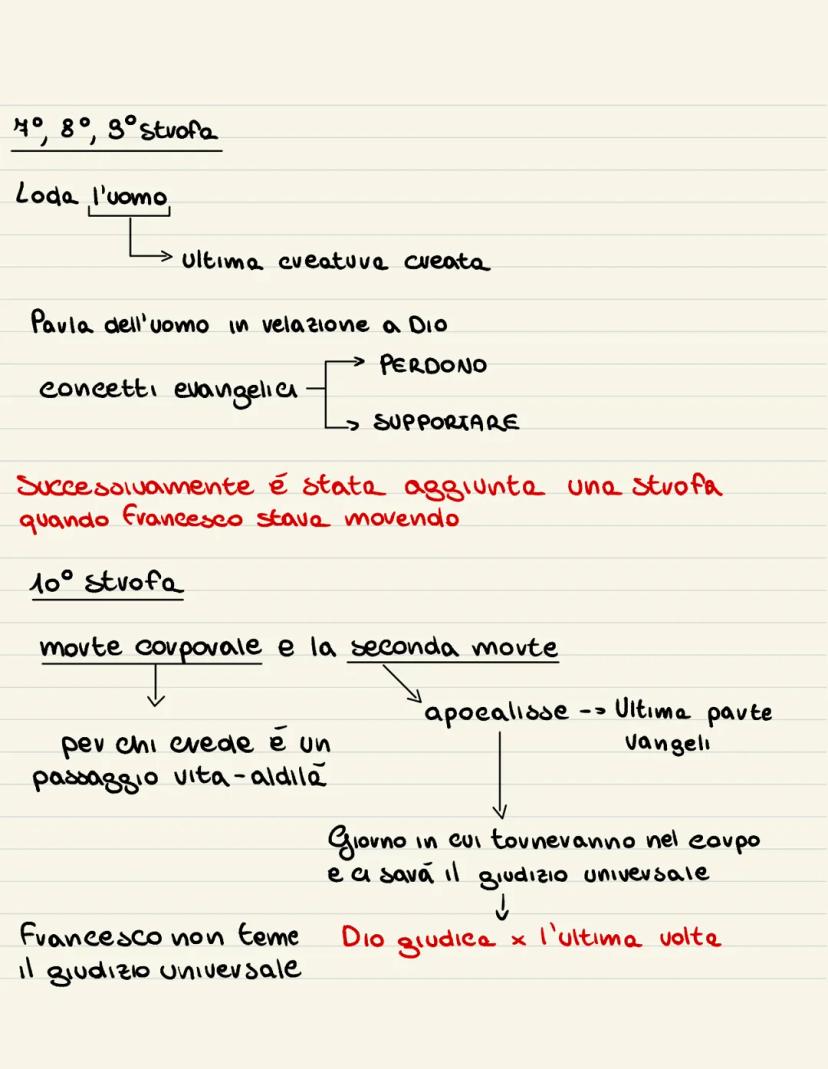 7°, 8°, 9° strofa
Loda l'uomo
ultima creatura creata
Parla dell'uomo in relazione a Dio
concetti evangelici
PERDONO
SUPPORTARE
Successivamente é stata aggiunta una strofa
quando Francesco stava morendo
10° strofa
morte corporale e la seconda morte
apocalisse --> Ultima parte
Vangeli
per chi crede é un
passaggio vita-aldilà
Giorno in cui torneranno nel corpo
e ci sarà il giudizio universale
Francesco non teme
il giudizio universale
Dio giudica x l'ultima volta